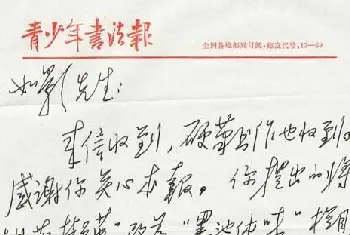 青少年书法报
全国各地邮局订阅·邮发代号:13—49
如影先生:
来信收到,硬笔写作也收到。
感谢你关心本报。你提出的将
"墨池体味"栏目